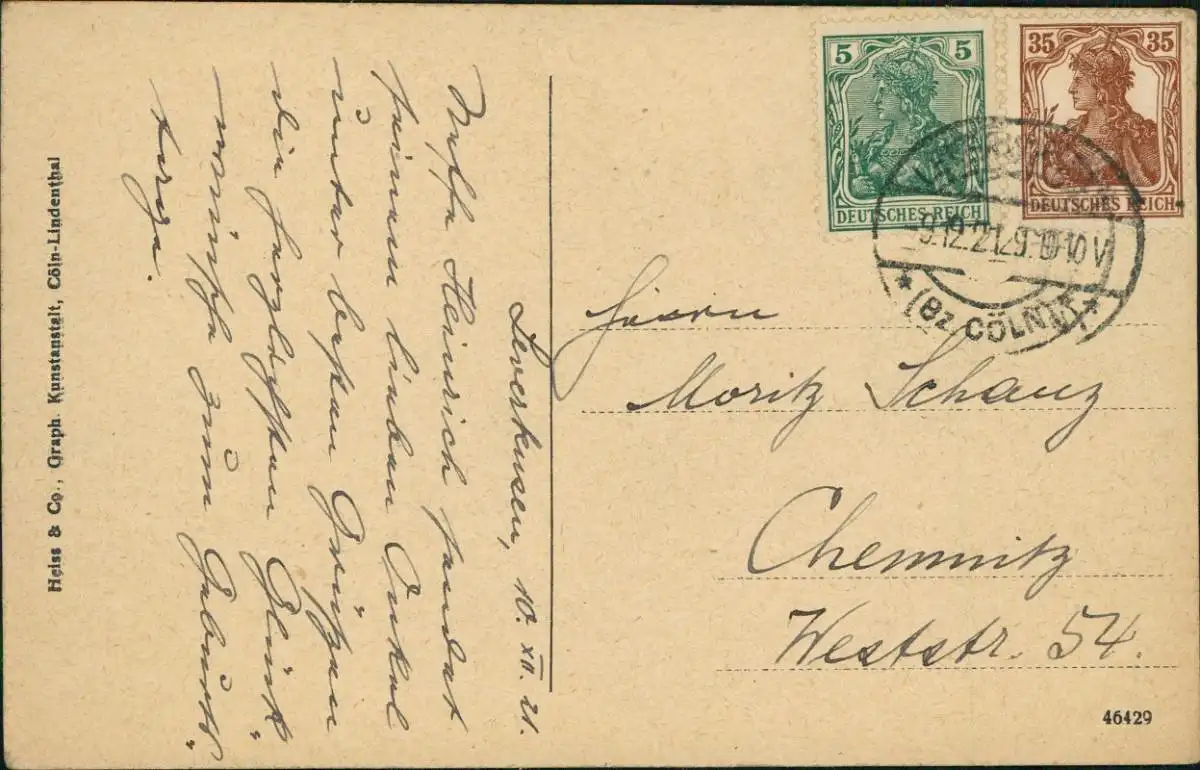 5 5
DEUTSCHES REICH
35 35
DEUTSCHES REICH
-9.12.21.9-10V
*(Bz. CÖLN)*
Leverkusen, 10. XII. 21.
Neffe Heinrich sendet
seinem lieben Onkel
unter besten Grüßen
die herzlichsten Glück-
wünsche zum Geburts-
tage.
Herrn
Moritz Schanz
Chemnitz
Weststr. 54.
46429
Heiss & Co., Graph. Kunstanstalt, Cöln-Lindenthal